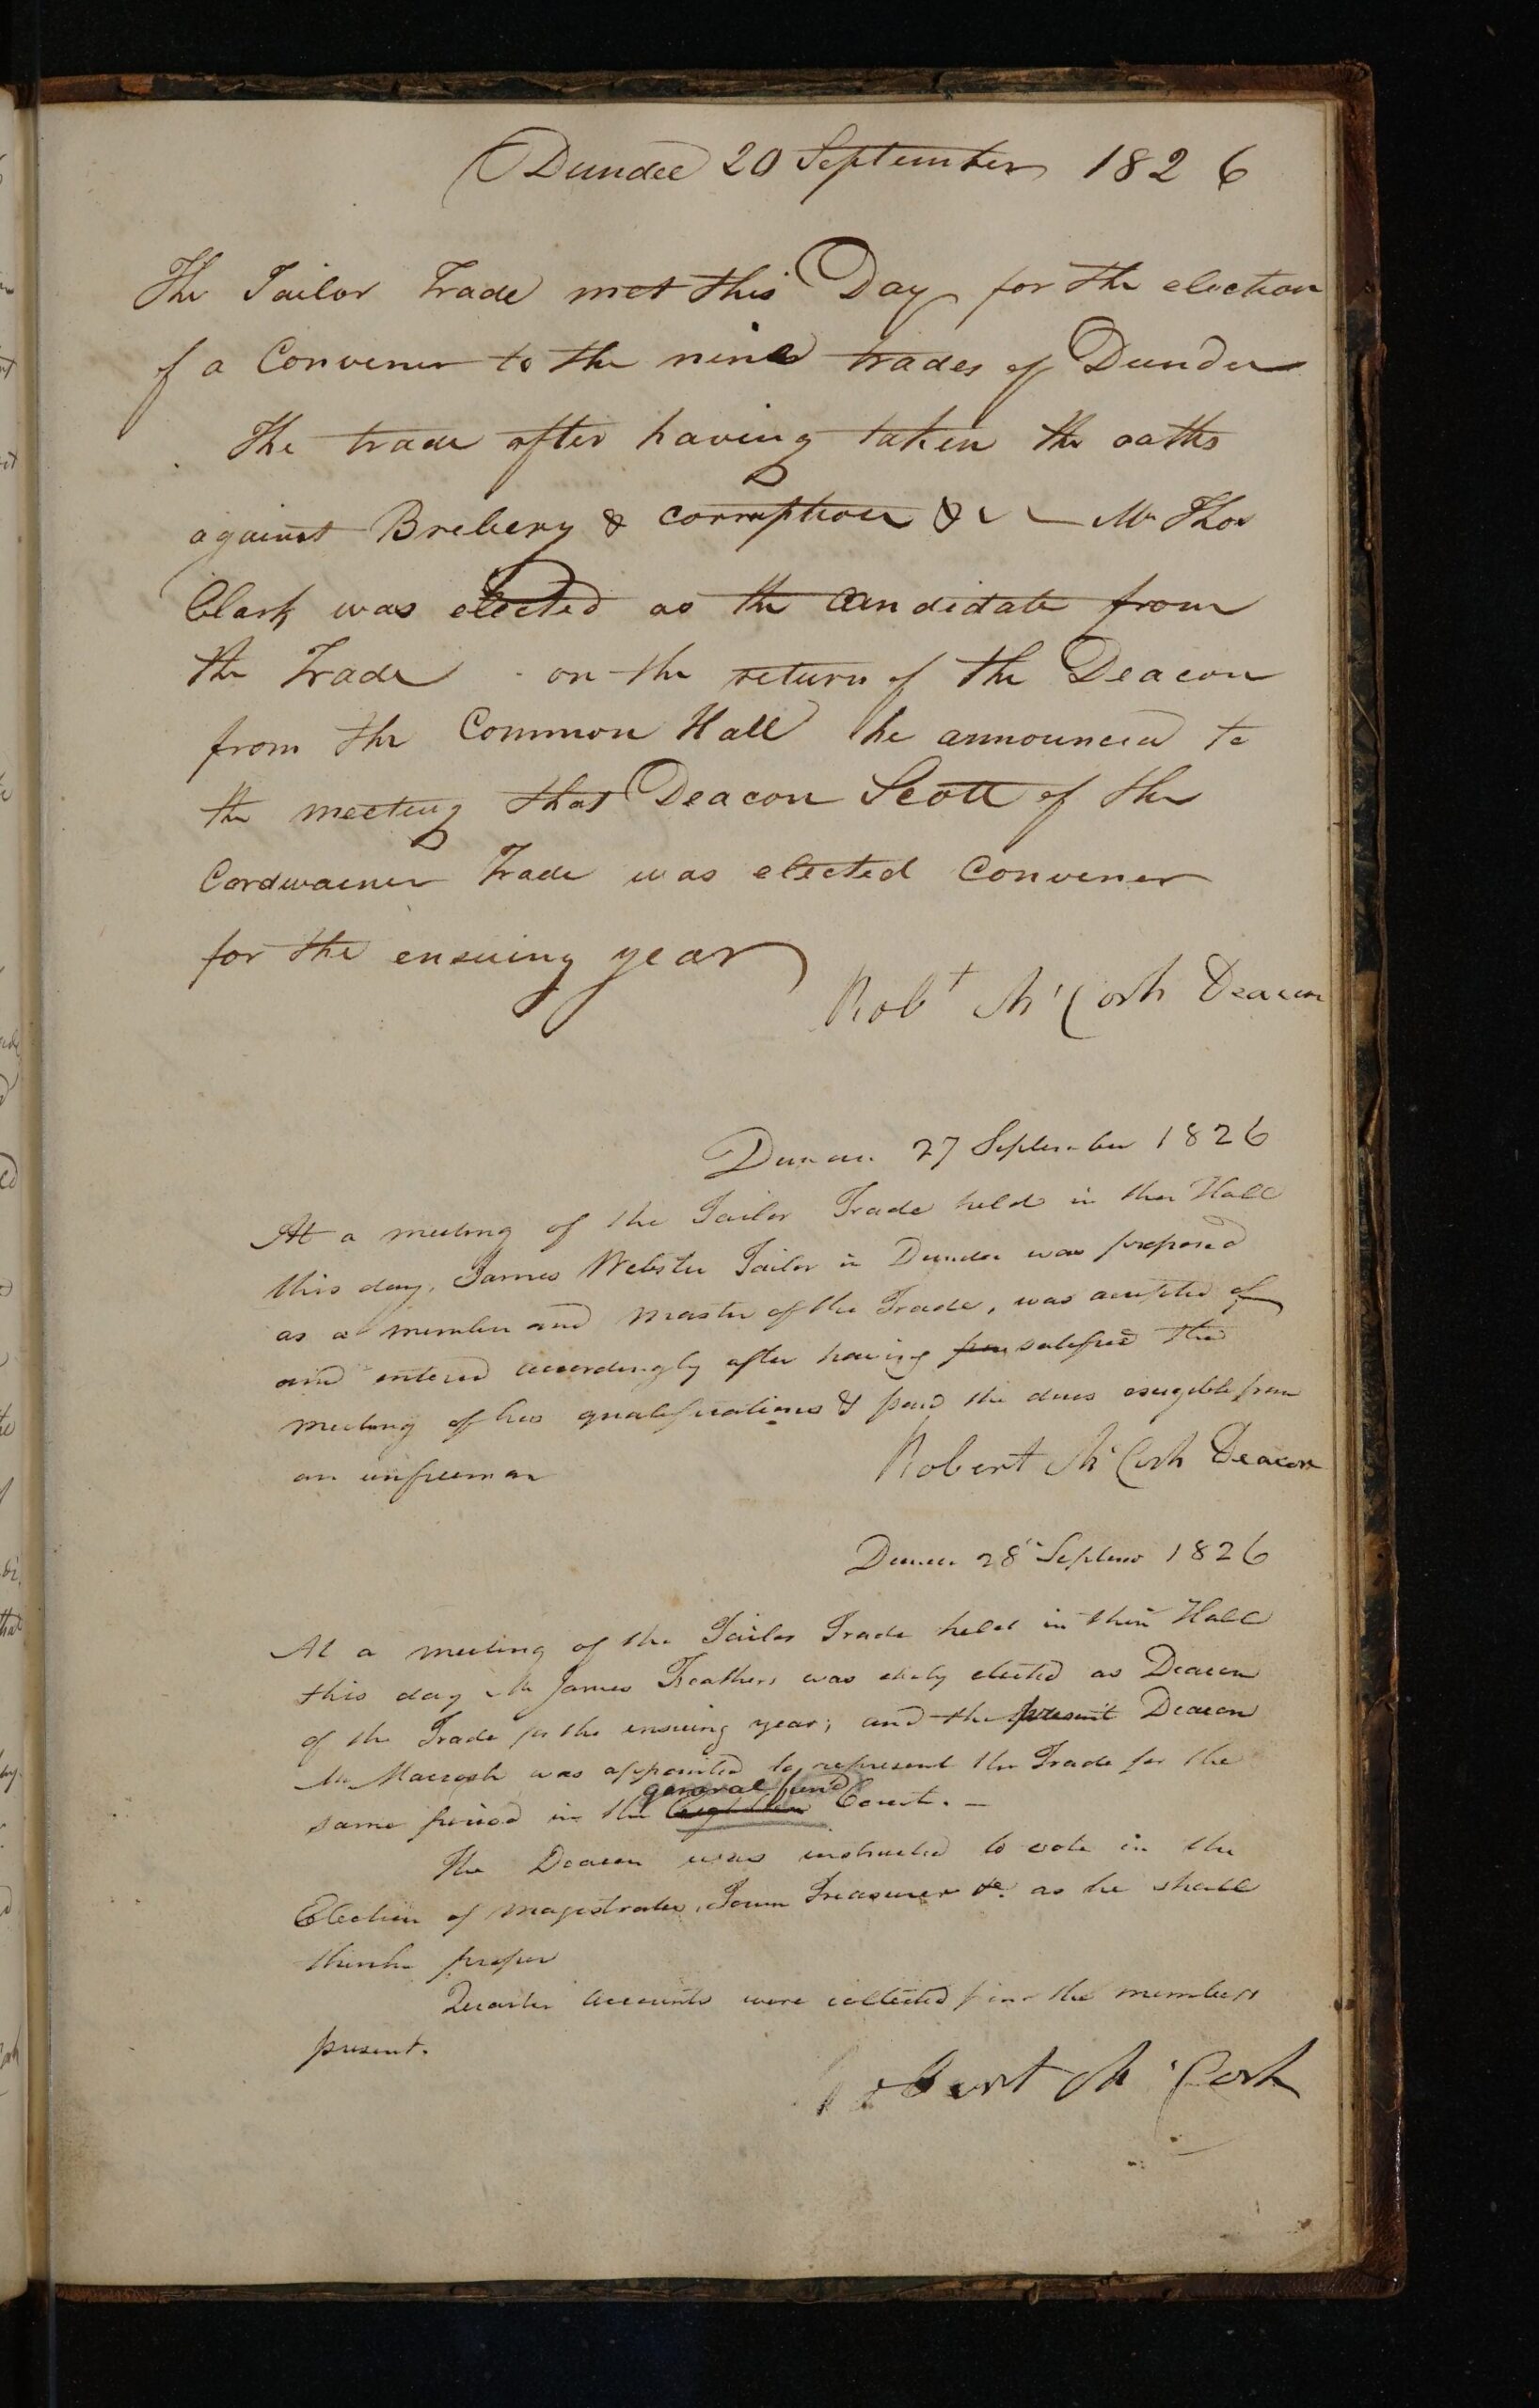 Dundee 20 September 1826
The Tailor Trade met this Day for the election
of a Convener to the nine trades of Dundee
The trade after having taken the oaths
against Brebery & corruption &c — Mr Thos
Clark was elected as the Candidate from
the Trade - on the return of the Deacon
from the Common Hall he announced to
the meeting that Deacon Scott of the
Cordwainer Trade was elected Convener
for the ensuing year
Robt McCosh Deacon
Dundee 27 September 1826
At a meeting of the Tailor Trade held in their Hall
this day, James Webster Tailor in Dundee was proposed
as a member and Master of the Trade, was accepted of
and entered accordingly after having satisfied the
meeting of his qualifications & paid the dues exigible from
an unfreeman
Robert McCosh Deacon
Dundee 28 Septemr 1826
At a meeting of the Tailor Trade held in their Hall
this day Mr James Feathers was duly elected as Deacon
of the Trade for the ensuing year; and the present Deacon
Mr Maccosh was appointed to represent the Trade for the
general fund
same period in the Court. —
The Deacon was instructed to vote in the
Election of Magistrates, Town Treasurer &c. as he shall
think proper
Quarter accounts were collected from the members
present.
Robert McCosh